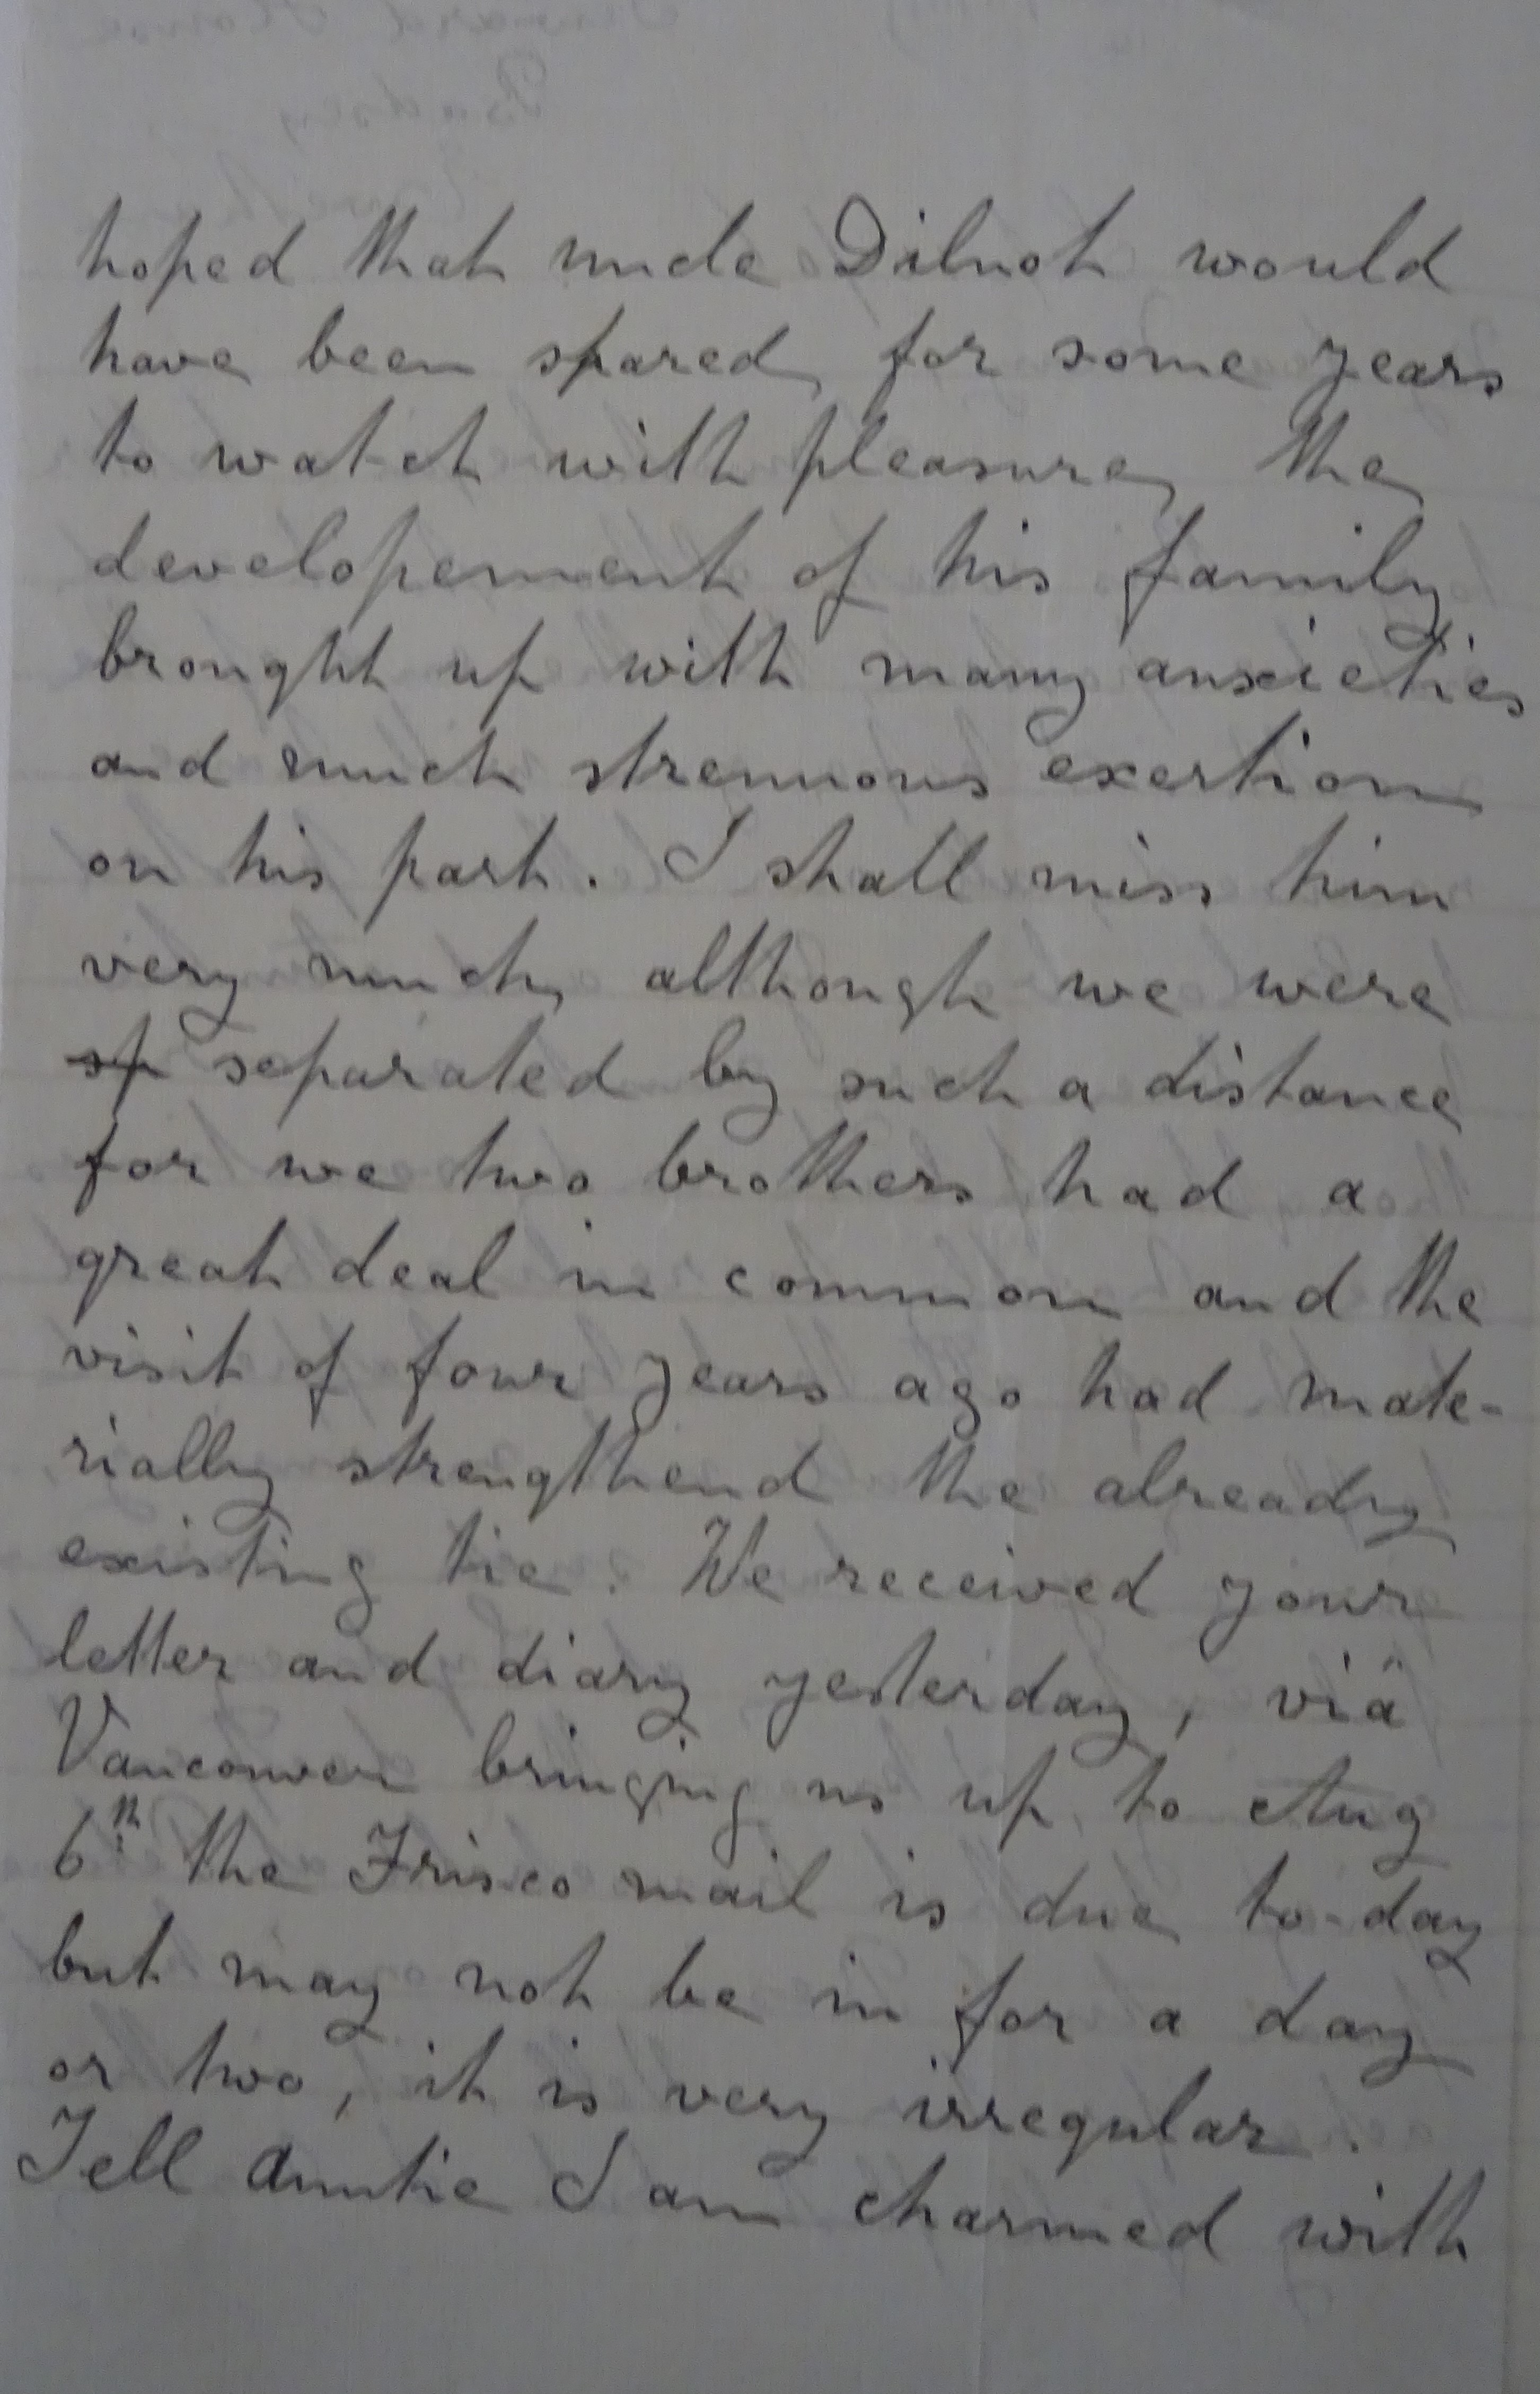 hoped that uncle Dilnot would
have been spared for some years
to watch with pleasure the
developement of his family
brought up with many anxieties
and much strenuous exertion
on his part. I shall miss him
very much, although we were
sp separated by such a distance
for we two brothers had a
great deal in common and the
visit of four years ago had mate-
rially strengthend the already
existing tie. We received your
letter and diary yesterday, viä
Vancouver bringing us up to Aug
6th the Frisco mail is due to-day
but may not be in for a day
or two, it is very irregular.
Tell Auntie I am charmed with